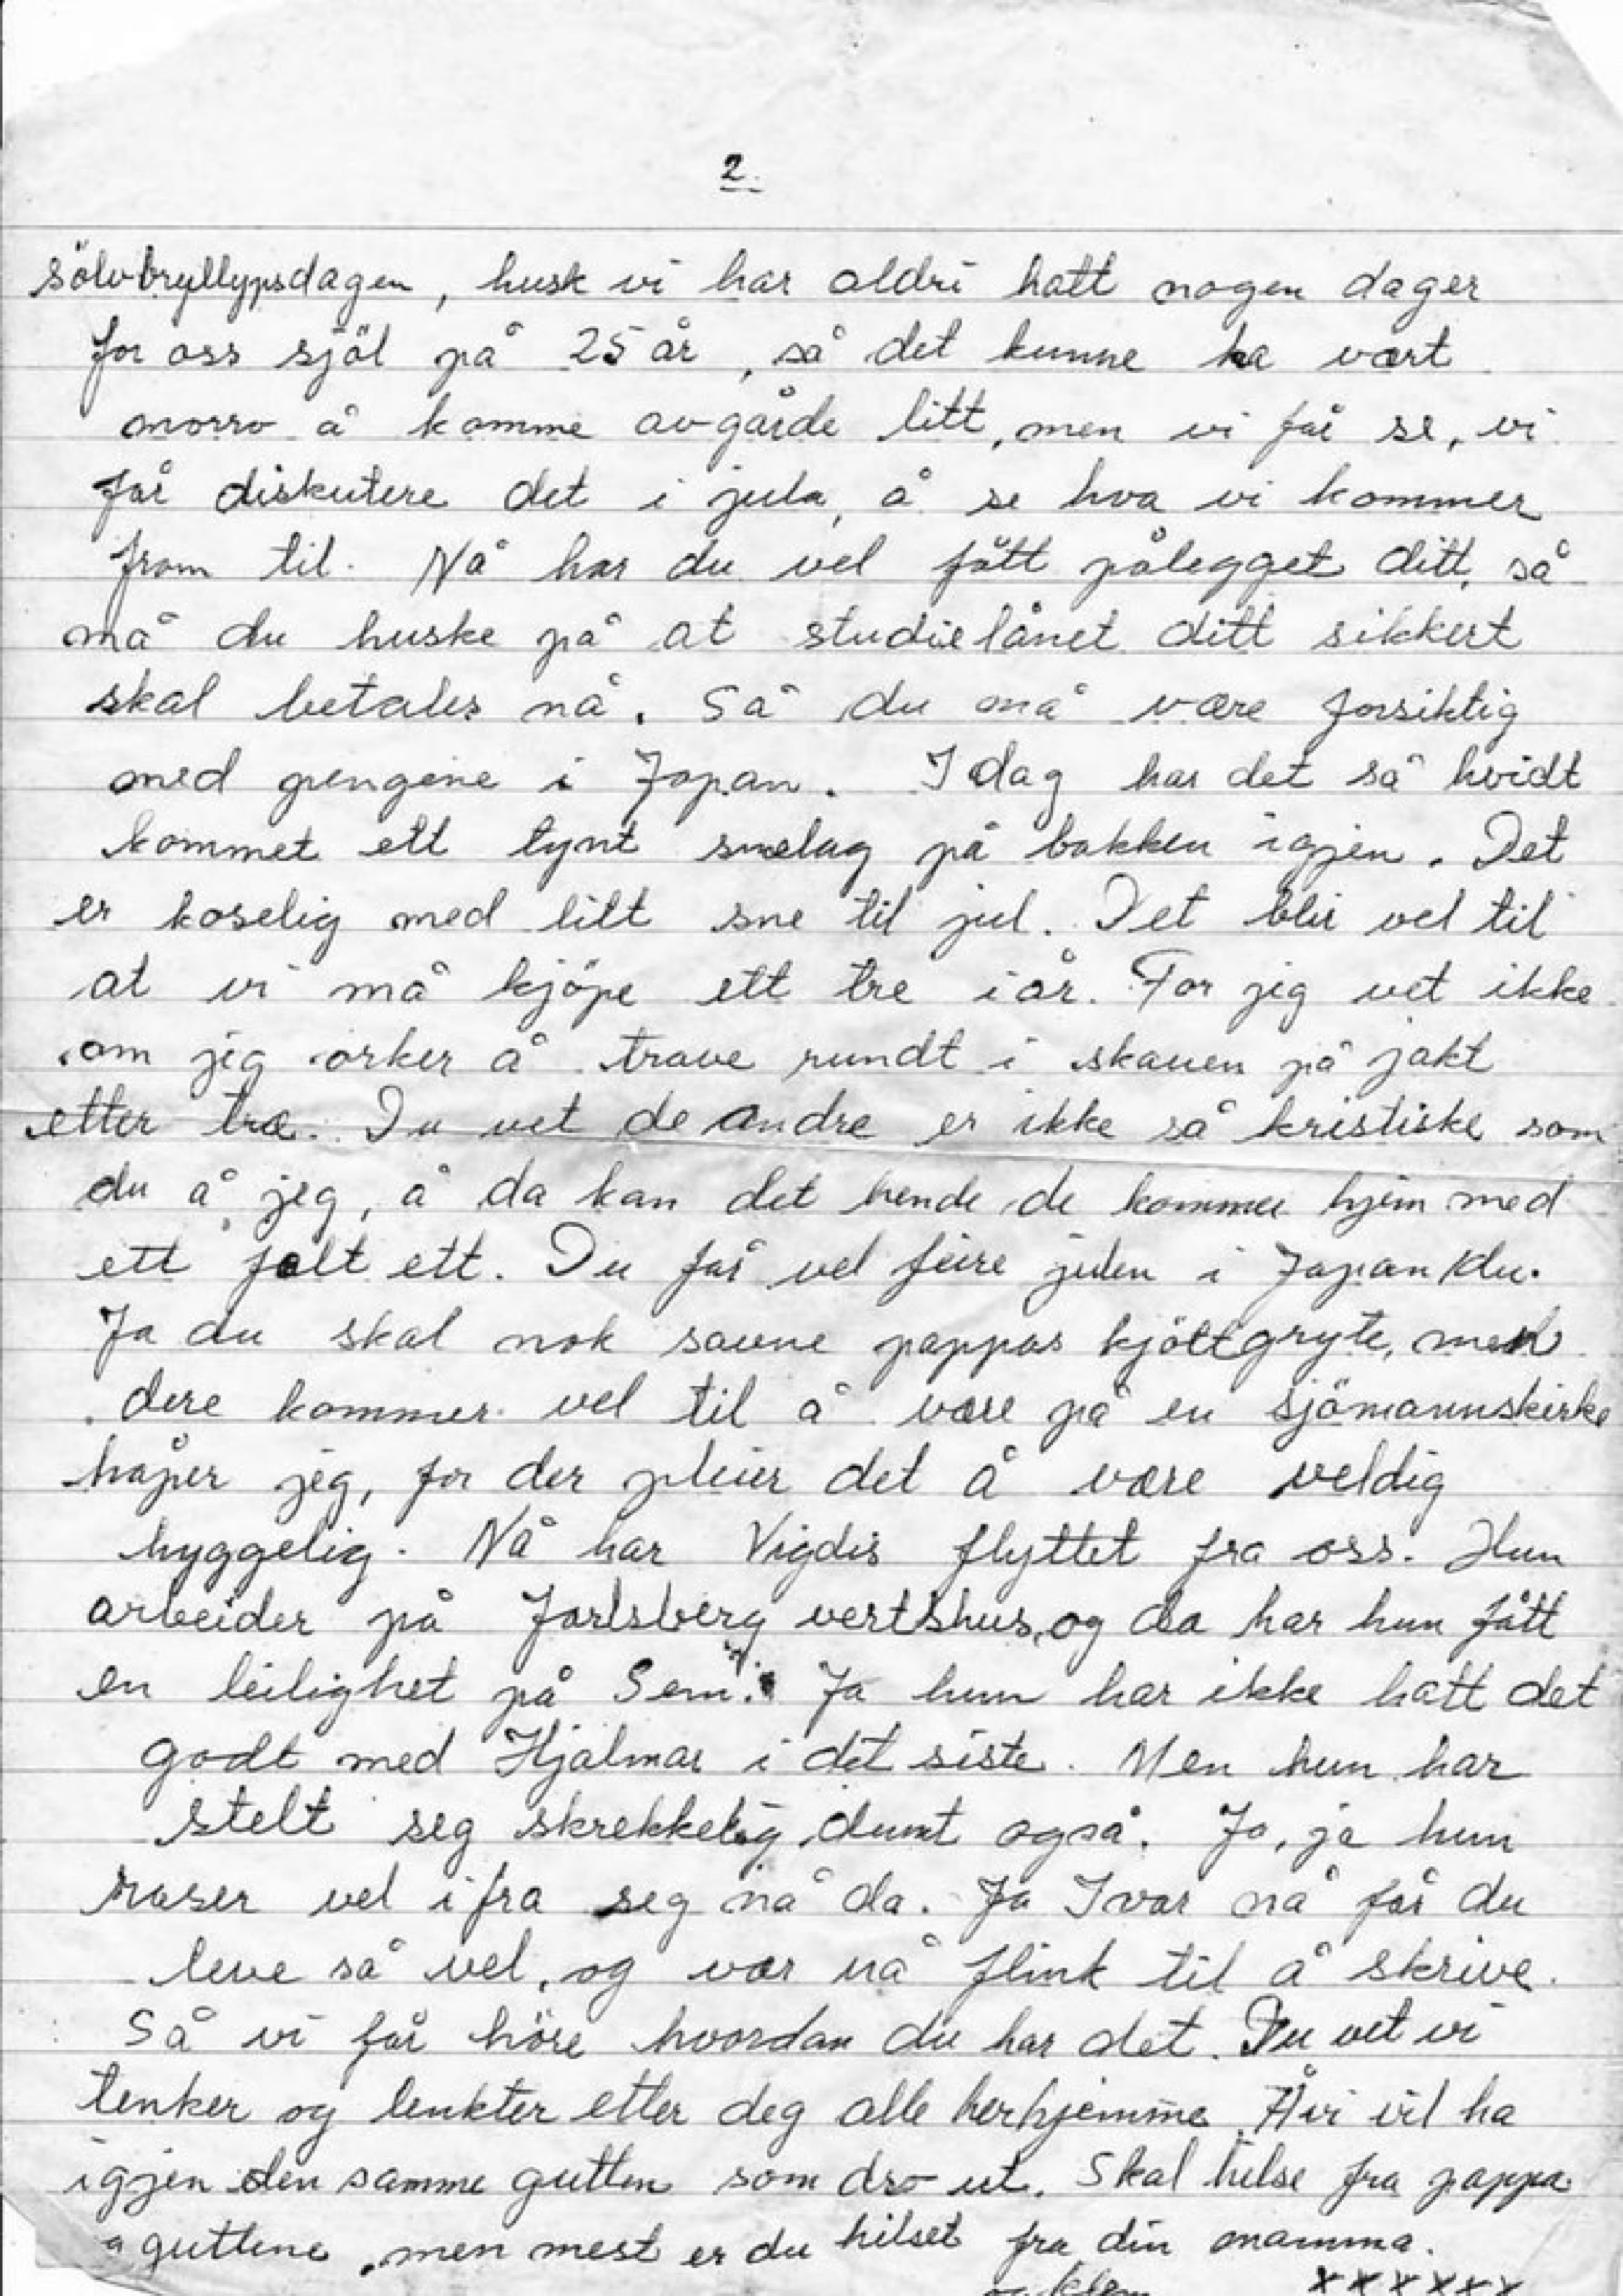 2.
sölvbryllypsdagen, husk vi har aldri hatt nogen dager
for oss sjöl på 25 år, så det kunne ha vært
morro å komme avgårde litt, men vi får se, vi
får diskutere det i jula, å se hva vi kommer
fram til. Nå har du vel fått pålegget ditt, så
må du huske på at studielånet ditt sikkert
skal betales nå. Så du må være forsiktig
med pengene i Japan. I dag har det så hvidt
kommet ett tynt snelag på bakken igjen. Det
er koselig med litt sne til jul. Det blir vel til
at vi må kjöpe ett tre i år. For jeg vet ikke
om jeg orker å trave rundt i skauen på jakt
etter tre. Du vet de andre er ikke så kristiske som
du å jeg, å da kan det hende de kommer hjem med
ett fælt ett. Du får vel feire julen i Japan du.
Ja du skal nok savne pappas kjöttgryte, men
dere kommer vel til å være på en sjömannskirke
håper jeg, for der pleier det å være veldig
hyggelig. Nå har Vigdis flyttet fra oss. Hun
arbeider på Jarlsberg vertshus, og da har hun fått
en leilighet på Sem. Ja hun har ikke hatt det
godt med Hjalmar i det siste. Men hun har
stelt seg skrekkelig dumt også. Ja, ja hun
raser vel ifra seg nå da. Ja Ivar nå får du
leve så vel, og vær nå flink til å skrive.
Så vi får höre hvordan du har det. Du vet vi
tenker og lenkter etter deg alle herhjemme. Å vi vil ha
igjen den samme gutten som dro ut. Skal hilse fra pappa
å guttene, men mest er du hilset fra din mamma.
og klem xxxxxx